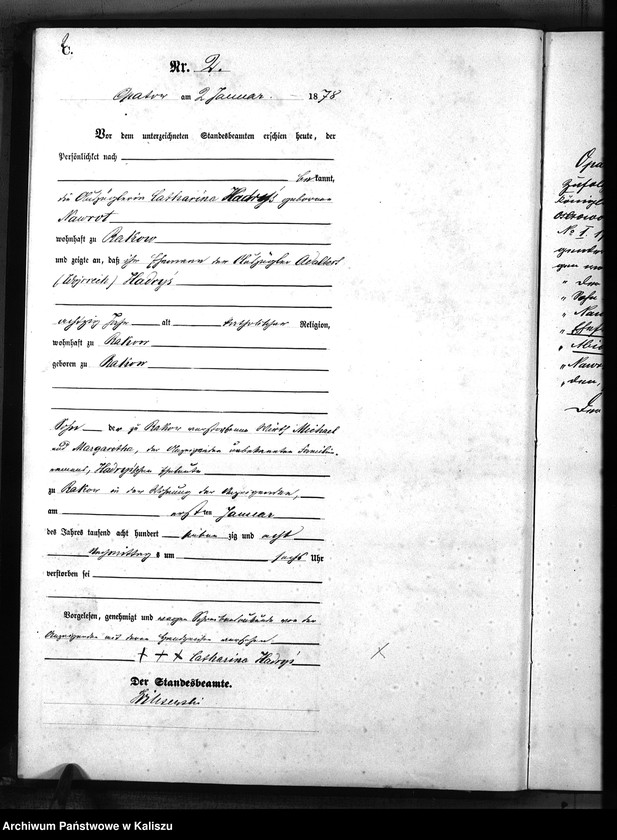 C.
Nr. 2.
Opatow am 2 Januar 1878
Vor dem unterzeichneten Standesbeamten erschien heute, der
Persönlichkeit nach
bekannt,
die Auszüglerin Catharina Hadryś geborene
Nawrot
wohnhaft zu Rakow
und zeigte an, daß ihr Ehemann der Auszügler Adalbert
(Wojciech) Hadryś
achtzig Jahr alt katholischer Religion,
wohnhaft zu Rakow
geboren zu Rakow
Sohn der zu Rakow verstorbenen Wirth Michael
und Margaretha, der Anzeigenden unbekannten Familien-
namens, Hadryśschen Eheleute
zu Rakow in der Wohnung der Anzeigenden,
am ersten Januar
des Jahres tausend acht hundert sieben zig und acht
Nachmittags um sechs Uhr
verstorben sei
Vorgelesen, genehmigt und wegen Schreibensunkunde von der
Anzeigenden mit deren Handzeichen versehen
+ + + Catharina Hadryś
Der Standesbeamte.
Opa
zufol
Königl
Ostrowo
No I
"Sohn
"Naw
"Ehef
"Nawr
"den
Archiwum Państwowe w Kaliszu